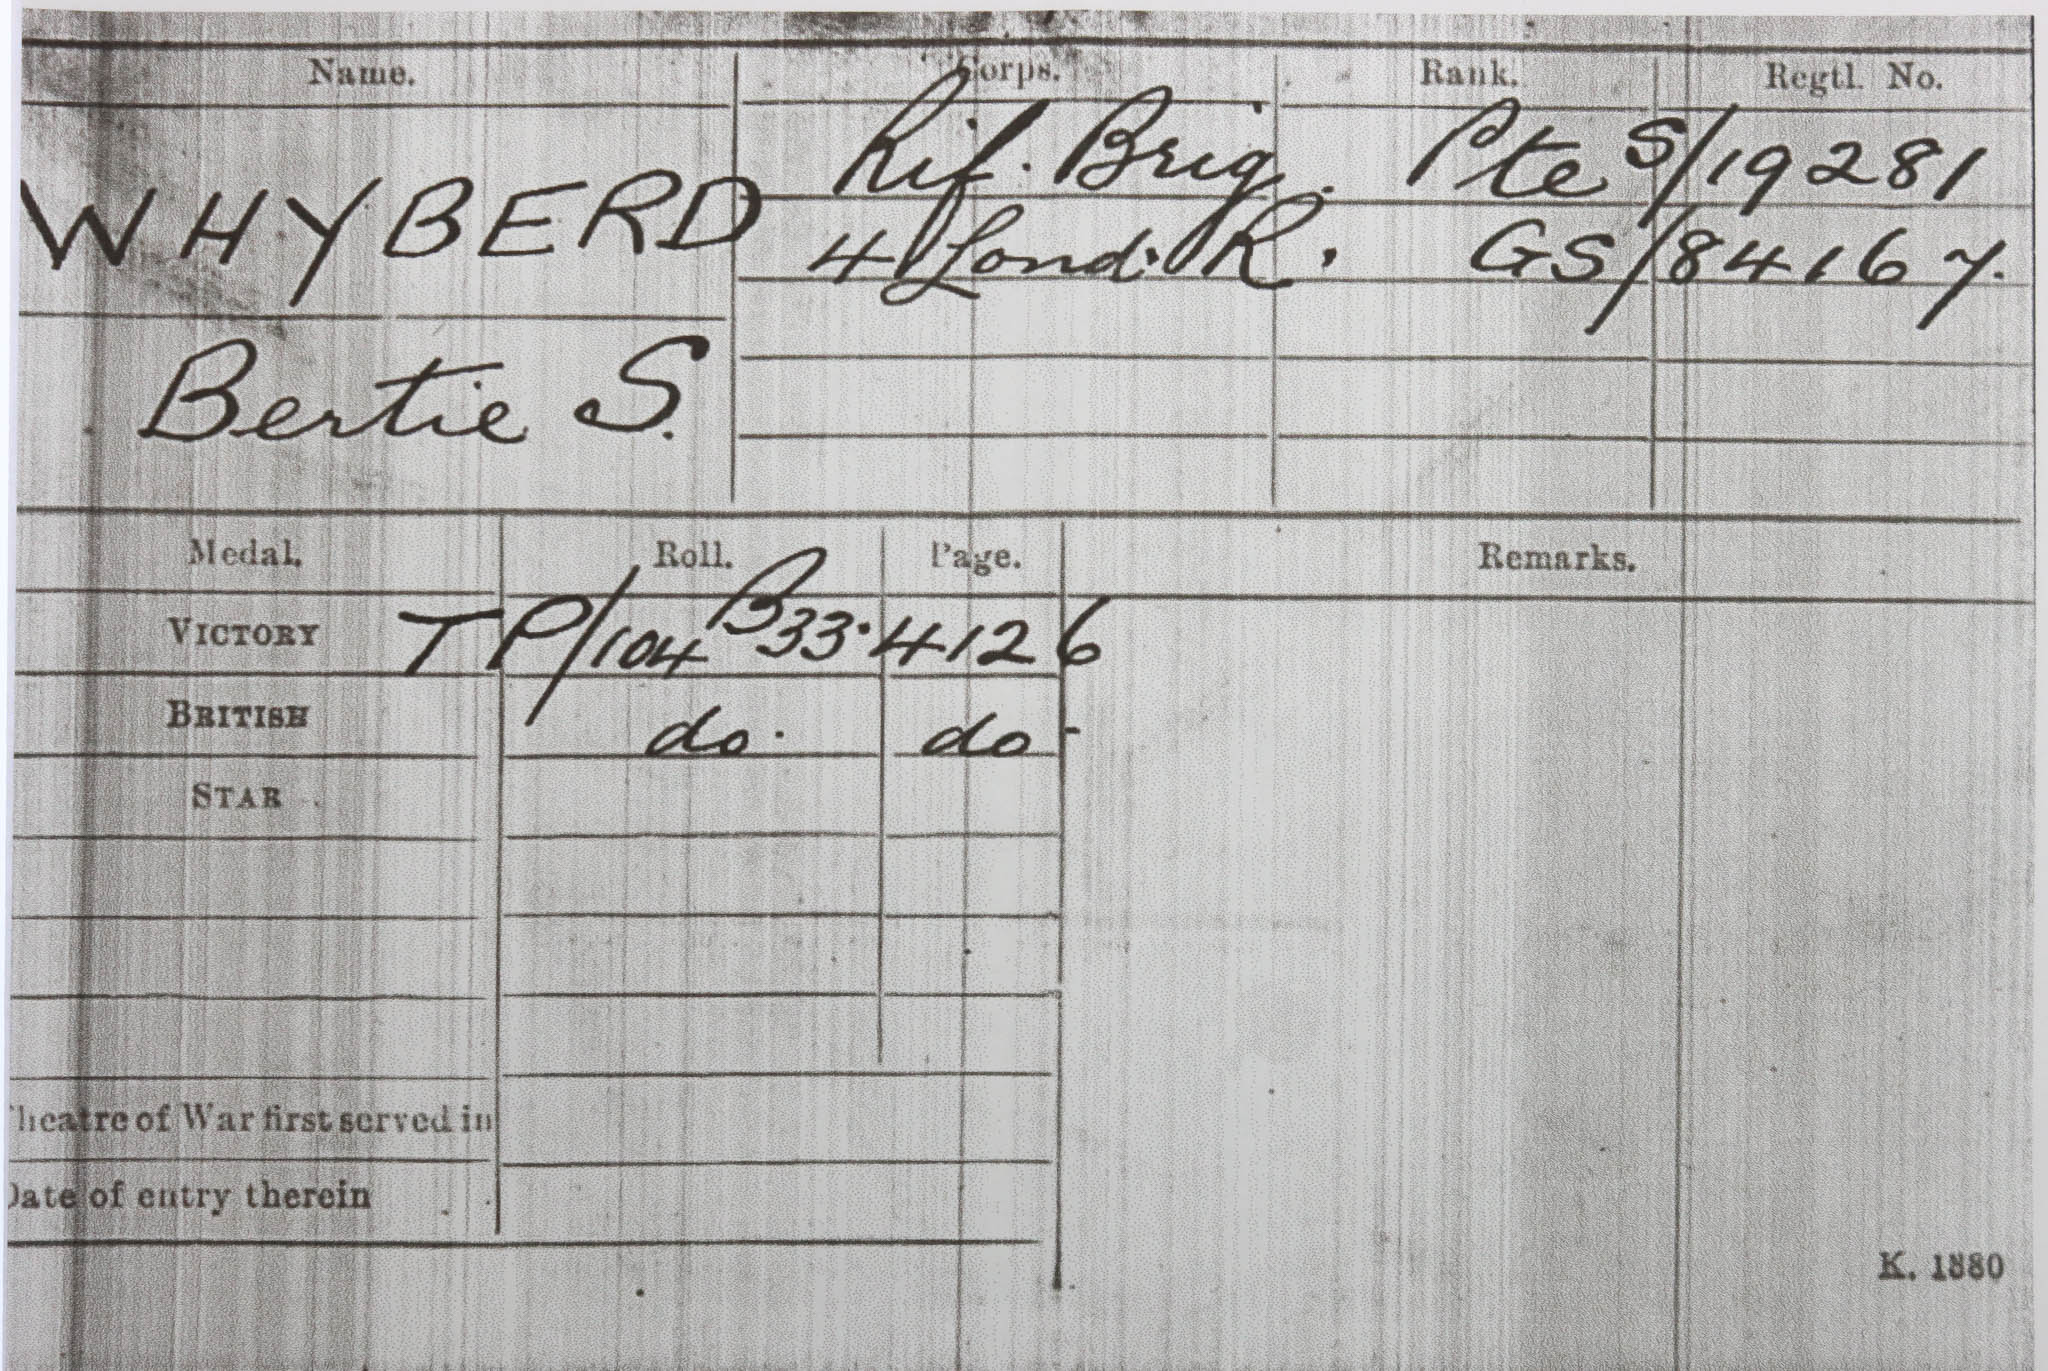 Name. Corps. Rank. Regtl. No.
WHYBERD Rif. Brig. Pte S/19281
4 Lond. R. GS/84167.
Bertie S.
Medal. Roll. Page. Remarks.
VICTORY TP/104 B33. 4126
BRITISH do. do-
STAR
Theatre of War first served in
Date of entry therein
K. 1380